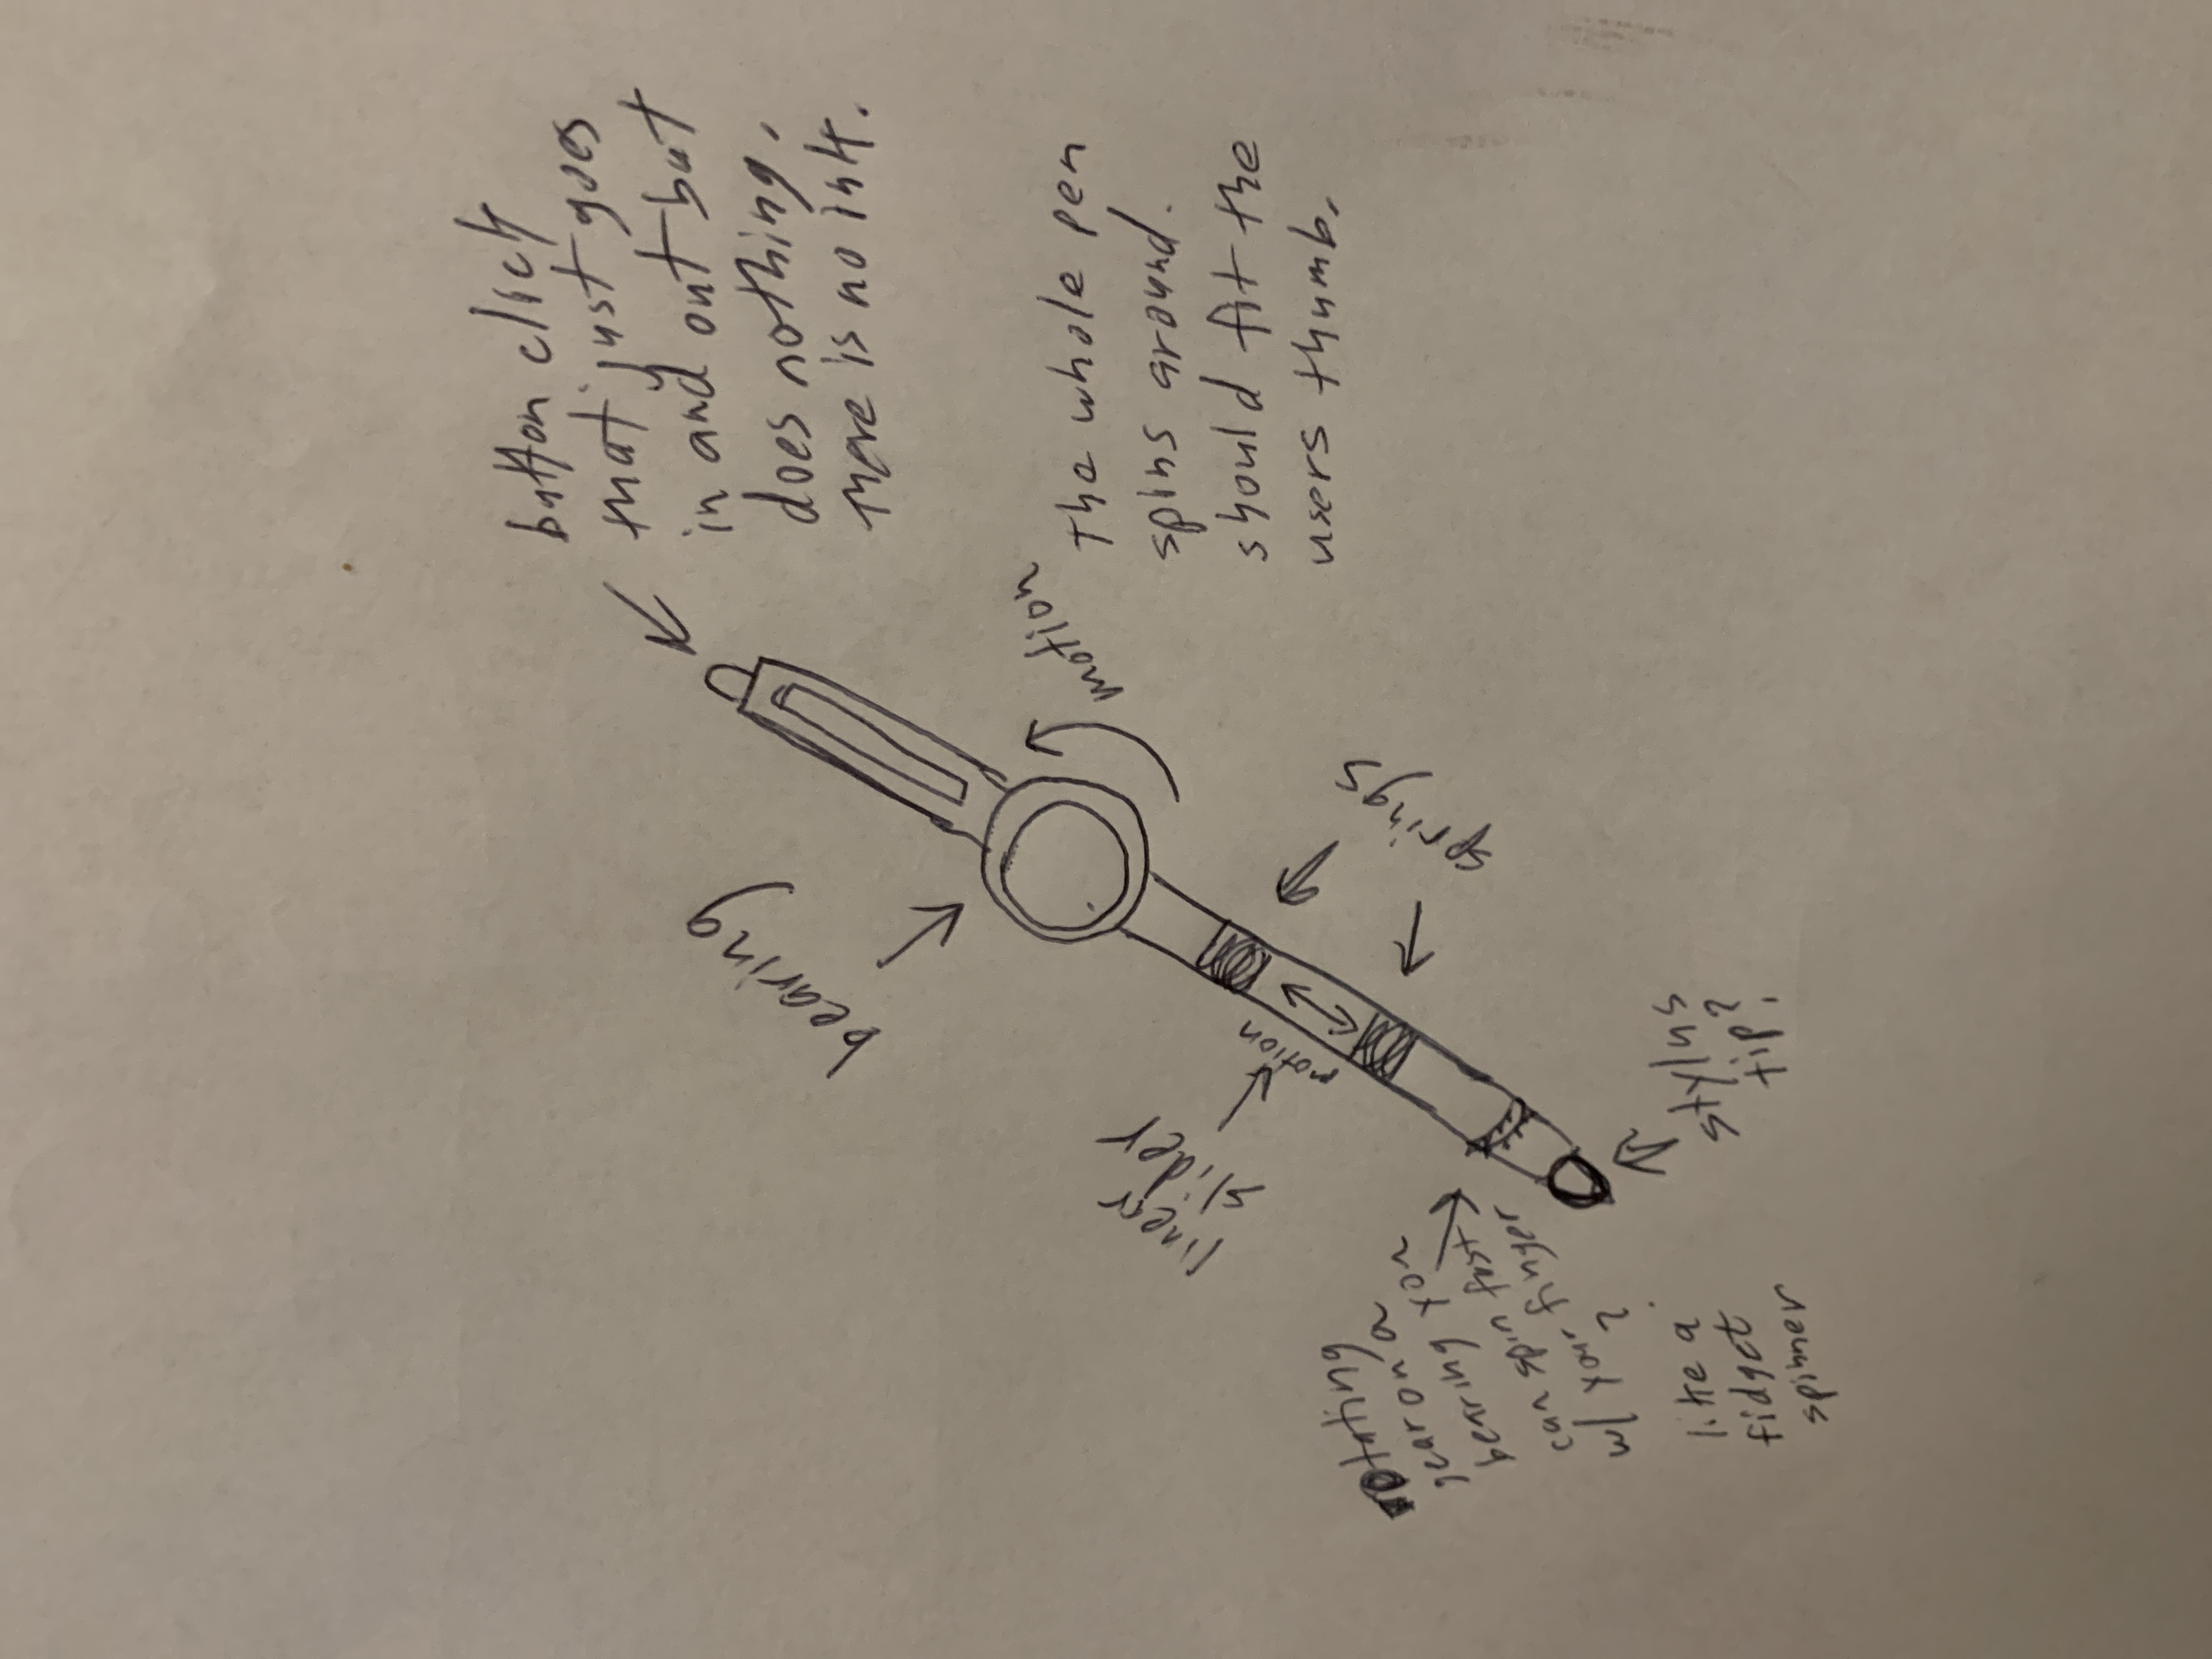 button click
that just goes
in and out but
does nothing,
there is no ink.
the whole pen
spins around.
should fit the
users thumb.
motion
bearing
springs
linear
slider
motion
stylus
tip?
rotating
gear on a
bearing you
can spin fast
w/ your finger
like a
fidget
spinner